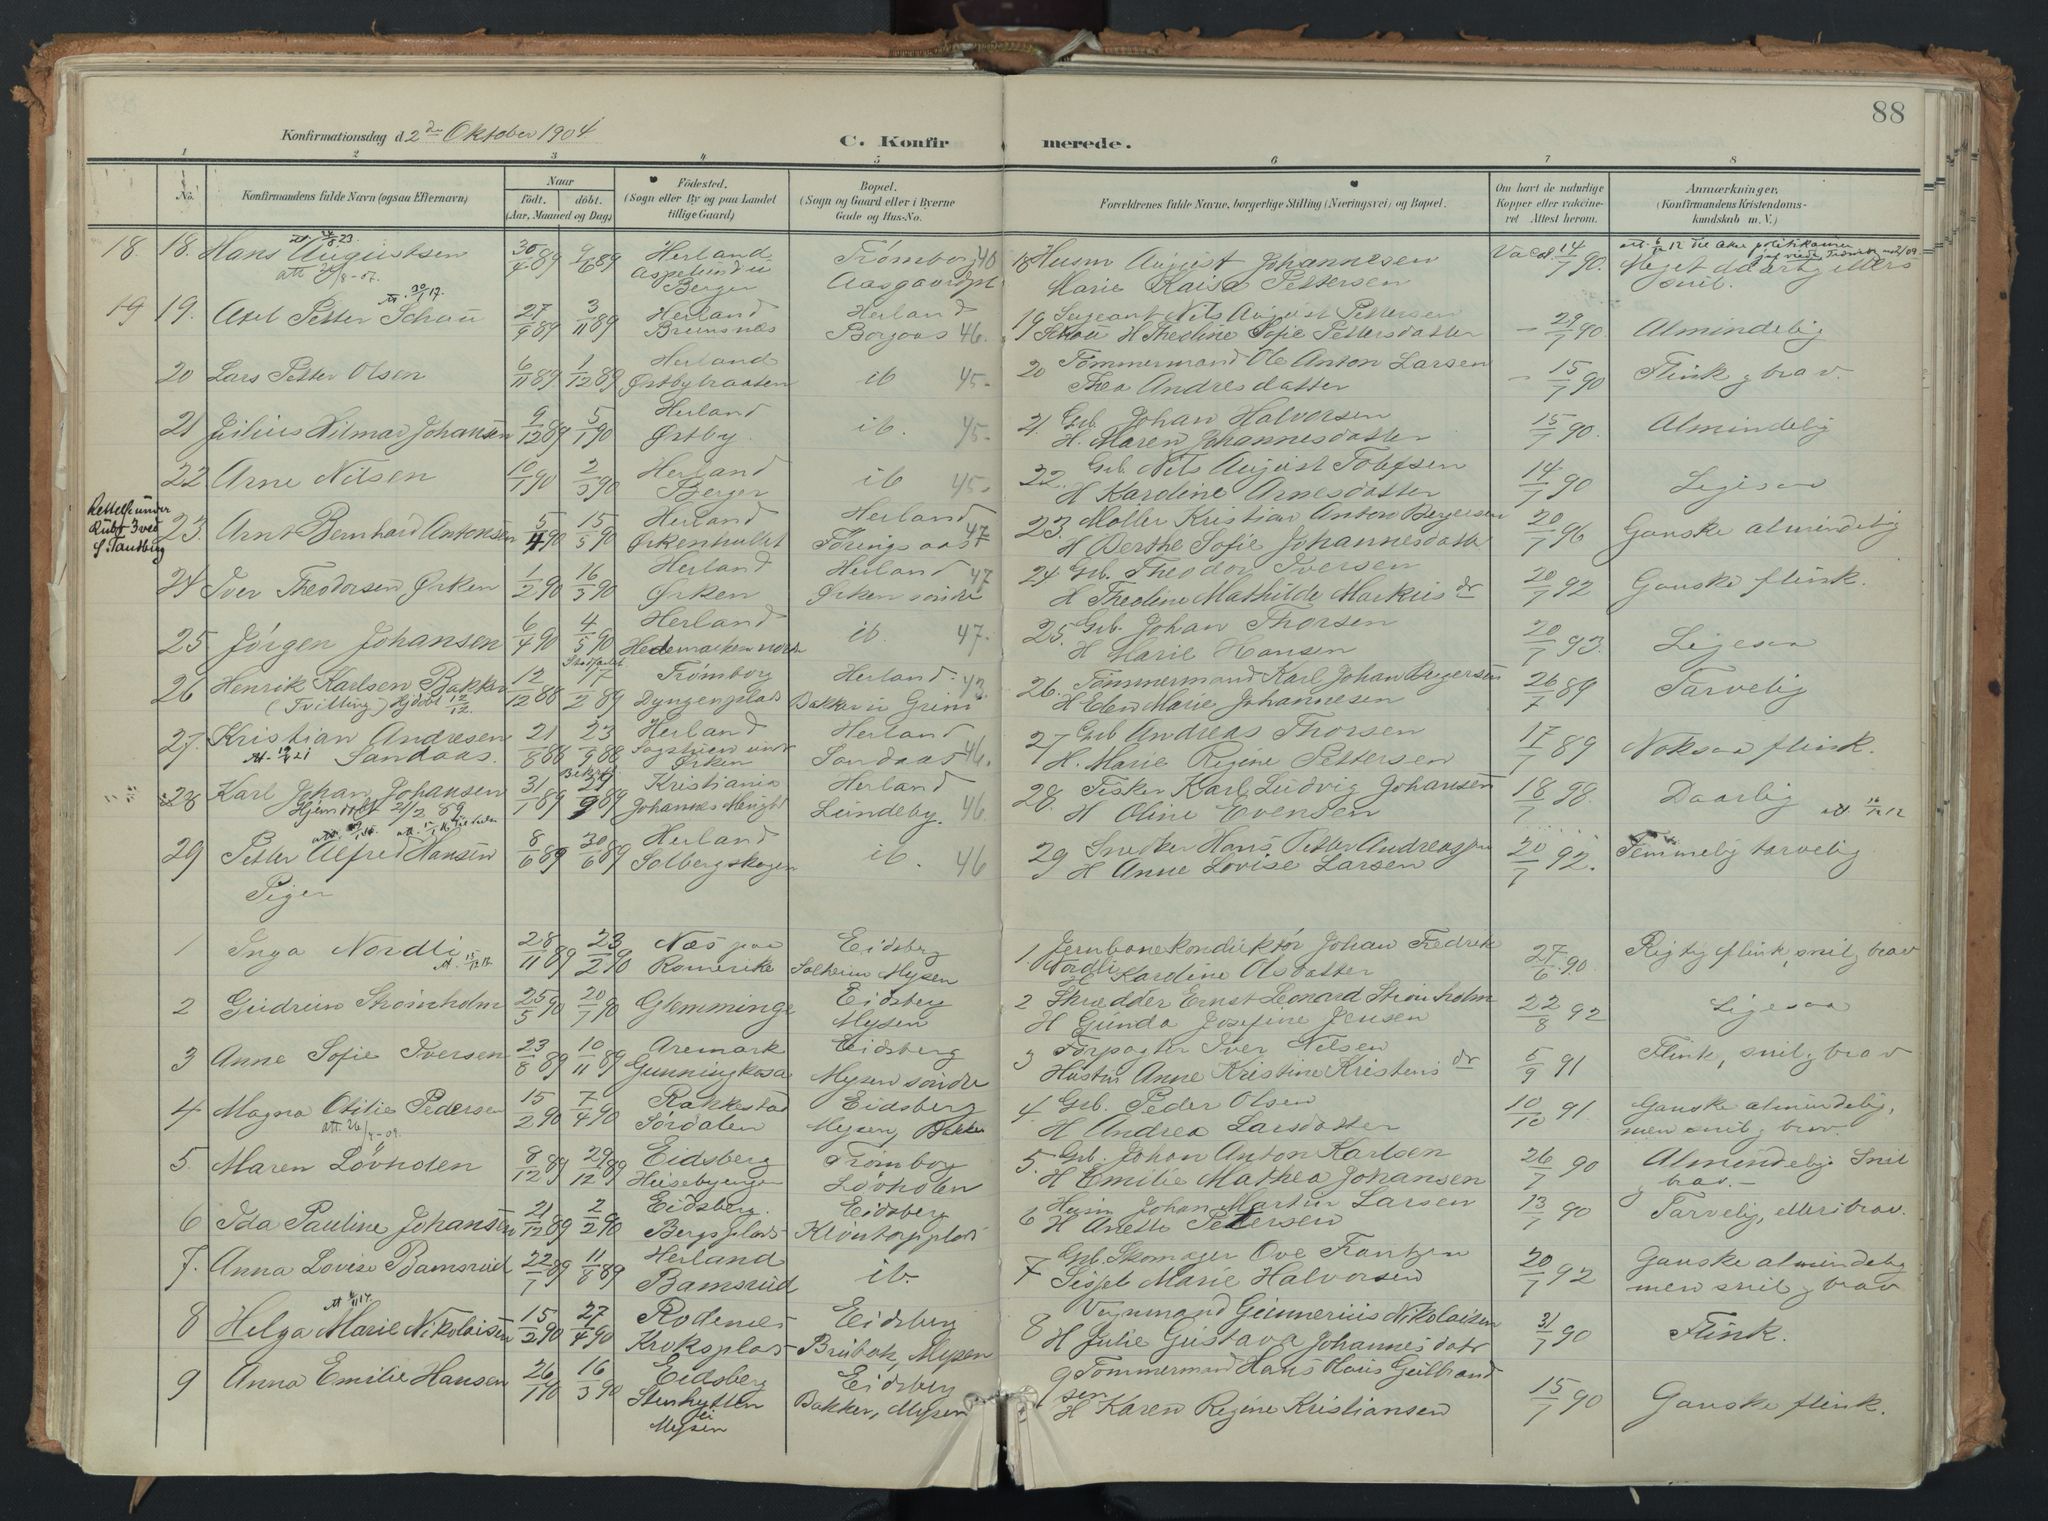 88
Konfirmationsdag d. 2den Oktober 1904
C. Konfirmerede.
1 2 3 4 5 6 7 8
No.
Konfirmandens fulde Navn (ogsaa Efternavn)
Naar
født. døbt.
(Aar, Maaned og Dag)
Fødested.
(Sogn eller By og paa Landet tillige Gaard)
Bopæl.
(Sogn og Gaard eller i Byerne Gade og Hus-No.
Forældrenes fulde Navne, borgerlige Stilling (Næringsvei) og Bopæl.
Om havt de naturlige Kopper eller vaccineret. Attest herom.
Anmærkninger.
(Konfirmandens Kristendomskundskab m. V.)
18. 18. Hans Augustsen 30/4 89 9/6 89 Herland Berger Trømborg 40
18 Husm August Johannesen
Marie Kaisa Pettersen
Vacc. 14/7 90.
19 19. Axel Petter Schau 27/9 89 3/11 89 Herland Bremsnes Herland Borgaas 46.
19 Sergeant Nils August Pettersen
Schau H Thedine Sofie Pettersdatter
29/7 90 Almindelig
20 Lars Petter Olsen 6/11 89 1/12 89 Herland Østbybraaten ib 45.
20 Tømmermand Ole Anton Larsen
Thea Andresdatter
15/7 90 Flink g brav.
21 Julius Hilmar Johansen 9/12 89 5/1 90 Herland Østby. ib. 45.
21. Grb. Johan Halvorsen
H. Maren Johannesdatter
15/7 90. Almindelig
22 Arne Nilsen 10/1 90 2/3 90 Herland Berger ib 45.
22. Grb. Nils August Tolefsen
H Kardine Arnesdatter
14/7 90 Ligesaa
Rettelse under
Rubr 3 ved
23. Arnt Bernhard Antonsen 5/4 90 15/5 90 Herland Ørkenhullet Herland Tøringsaas 47
23. Møller Kristian Anton Bergersen
H Berthe Sofie Johannesdatter
20/7 96 Ganske almindelig
24 Iver Theodorsen Ørken 1/2 90 16/3 90 Herland Ørken Herland Ørken søndre 47
24 Grb. Theodor Iversen
H Thedine Mathilde Markus dr
20/7 92 Ganske flink.
25 Jørgen Johansen 6/4 90 4/5 90 Herland Hedemarken nordre ib. 47.
25. Grb. Johan Thorsen
H Marie Hansen
20/7 93. Ligesaa
26 Henrik Karlsen Bakker 12/12 88 17/2 89 Trømborg Dyngenplads Herland Bakker u Grini 43.
(Tvilling) Hjdøbt 12/12.
26. Tømmermand Karl Johan Bergersen
H Elen Marie Johannesen
26/7 89 Tarvelig
27. Kristian Andresen Sandaas. 21/8 88 23/9 88 Herland Sagstuen und Ørken Herland Sandaas 46.
27 Grb Andreas Thorsen
H. Marie Regine Pettersen
17/7 89 Noksaa flink.
28 Karl Johan Johansen 31/1 89 Kristiania Herland Lundeby. 46
Hjemdøbt 2/2 89
28. Fisker Karl Ludvig Johansen
H Oline Evensen
18/7 98. Daarlig
29 Petter Alfred Hansen 8/6 89 30/6 89 Herland Solbergskogen ib. 46
29 Snedker Hans Petter Andreassen
H Anne Lovise Larsen
20/7 92. Temmelig tarvelig
Piger
1 Inga Nordli 28/11 89 23/2 90 Næs paa Romerike Eidsberg Solheim Mysen
1 Jernbanekonduktør Johan Fredrik
Nordli H Kardine Olsdatter
27/6 90 Rigtig flink, snil g brav
2 Gudrun Strømholm 25/5 90 20/7 90 Glemminge Eidsberg Mysen
2 Skrædder Ernst Leonard Strømholm
H Gunda Josefine Jensen
22/8 92 Ligesaa
3 Anne Sofie Iversen 23/8 89 10/11 89 Aremark Eidsberg Mysen søndre
3 Forpagter Iver Nilsen
Hustru Anne Kristine Kristens dr
5/9 91 Flink, snil g brav
4 Magna Otilie Pedersen 15/2 90 7/4 90 Rakkestad Sørdalen Eidsberg Mysen, Bakke
4 Grb. Peder Olsen
H Andrea Larsdatter
10/10 91 Ganske almindelig,
men snil g brav
5. Maren Løvholen 8/12 89 29/12 89 Eidsberg Husebyengen Trømborg Løvholen
5. Grb. Johan Anton Karlsen
H Emilie Mathea Johansen
26/7 90 Almindelig Snil
g brav.
6 Ida Pauline Johansen 21/12 89 2/2 90 Eidsberg. Bergsplads Eidsberg
6 Husm Johan Martin Larsen
H Anette Petersen
13/7 90
7. Anna Lovise Bamsrud 22/7 89 11/8 89 Herland Bamsrud ib
7 Grb. Skomager Ove Frantzen
Marie Halvorsen
20/7 92 Ganske almindelig
men snil g brav
8 Helga Marie Nikolaisen 15/2 90 27/4 90 Rødenes Kroksplads Eidsberg Brubak, Mysen
8 Gunnerius Nikolaisen
H Julie Gustava Johannes datr
31/7 90 Flink.
9 Anna Emilie Hansen 26/1 90 16/3 90 Eidsberg Stenhytten u Mysen Eidsberg Bakker, Mysen
9 Tømmermand Hans Olaus Gulbrandsen
H Karen Regine Kristiansen
15/7 90 Ganske flink.